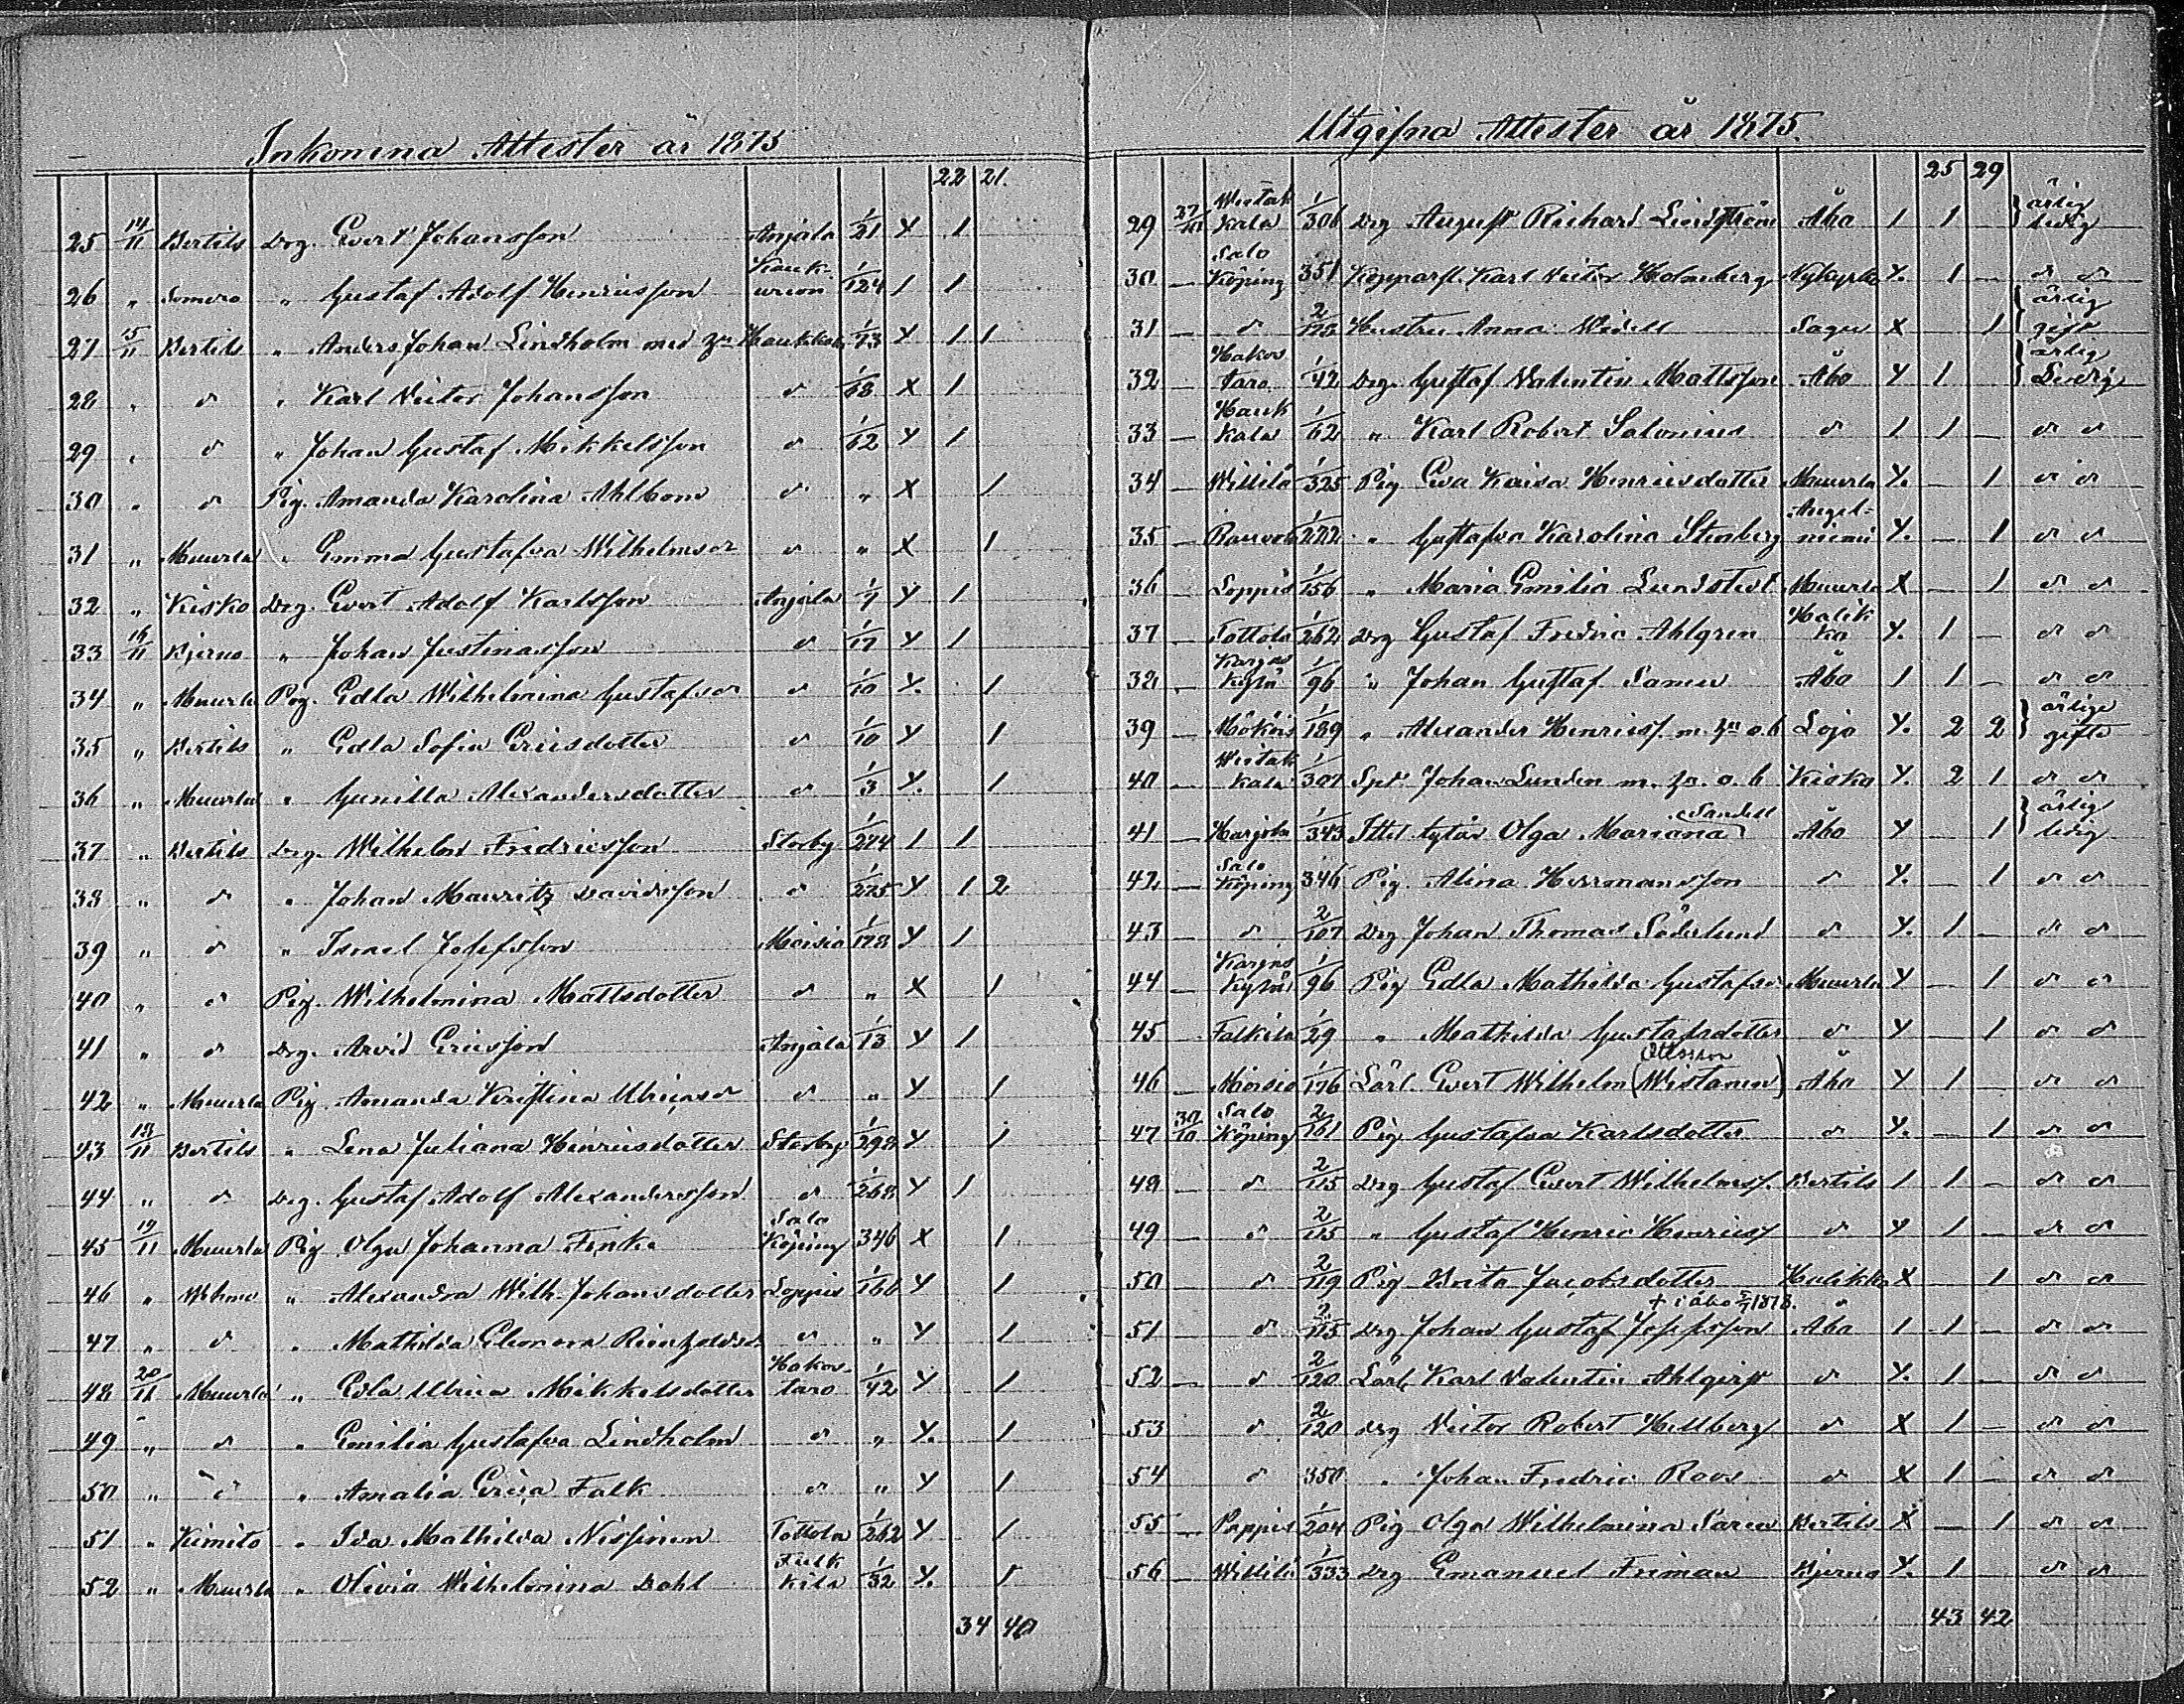 Inkomna Attester år 1875
22 21.
25 14/11 Bertils Drg. Evert Johansson Anjala 1/21 Y 1
26 " Somero " Gustaf Adolf Henricsson 1/124 1 1
27 15/11 Bertils " Anders Johan Lindholm med 1/73 Y 1 1
28 " d " Karl Victor Johansson d 1/68 X 1
29 " d " Johan Gustaf Mikkelsson d 1/62 Y 1
30 " d Pig. Amanda Karolina Ahlbom d " X 1
31 " Muurla " Emma Gustafva Wilhelmsdr d " X 1
32 " Kisko Drg. Evert Adolf Karlsson Anjala 1/7 Y 1
33 16/11 Bjerno " Johan Justinasson d 1/17 Y 1
34 " Muurla Pig. Edla Wilhelmina Gustafsdr d 1/10 Y. 1
35 " Bertils " Edla Sofia Ericsdotter d 1/10 Y 1
36 " Muurla " Gunilla Alexandersdotter d 1/3 Y. 1
37 " Bertils Drg. Wilhelm Fredricsson Storby 1/274 1 1
38 " d " Johan Mauritz Davidsson d 1/275 Y 1 2
39 " d " Israel Josefsson Moisio 1/178 Y 1
40 " d Pig. Wilhelmina Mattsdotter d " X 1
41 " d Drg. Arvid Ericsson Anjala 1/13 Y 1
42 " Muurla Pig. Amanda Kristina Ulricasdr d " Y 1
43 18/11 Bertils " Lena Juliana Henricsdotter Storby 1/298 Y 1
44 " d Drg. Gustaf Adolf Alexandersson d 1/268 Y 1
45 19/11 Muurla Pig Olga Johanna Finke Salo Köping 346 X 1
46 " Wehmo " Alexandra Wilh. Johansdotter Loppis 1/166 Y 1
47 " d " Mathilda Eleonora d " Y 1
48 20/11 Muurla " Edla Ulrica Mikkelsdotter Hakostaro 1/42 Y 1
49 " d " Emilia Gustafva Lindholm d " Y. 1
50 " d " Amalia Erica Falk d " Y 1
51 " Kimito " Ida Mathilda Nissinen Tottola 1/262 Y 1
52 " Muurla " Olivia Wilhelmina Dahl 1/32 Y. 1
34 40
Utgifna Attester år 1875.
25 29
29 27/10 Wiitakkala 1/306 Drg August Richard Lindström Åbo 1 1 ärlig ledig
30 — Salo Köping 351 Karl Victor Holmberg Nykyrko Y. 1 — d d
31 — d 2/123 Hustru Anna Widell Sagu X 1 ärlig gift
32 — Hakostaro 1/42 Drg. Gustaf Valentin Mattsson Åbo Y 1 ärlig Ledig
33 — Haukkala 1/62 " Karl Robert Salonius d 1 1 — d d
34 — Willilä 1/325 Pig Eva Kaisa Henricsdotter Muurla Y. — 1 d d
35 — 1/222 " Gustafva Karolina Stenberg Angelniemi Y. — 1 d d
36 — Loppis 1/156 " Maria Emilia Lundstedt Muurla X — 1 d d
37 — Tottola 1/262 Drg Gustaf Fredric Ahlgren Halikko Y. 1 — d d
38 — Karjas Kylä 1/96 " Johan Gustaf Saneu Åbo 1 1 — d d
39 — 1/189 " Alexander Henricss. m. o. b Lojo Y. 2 2 ärlige gifte
40 — Wiitakkala 1/307 Johan Lunden m. o. b Kisko Y. 2 1 d d
41 — 1/343 Olga Mariana (Sandell) Åbo Y — 1 ärlig ledig
42 — Salo Köping 346 Pig. Alina Hermansson d Y. — 1 d d
43 — d 2/107 Drg Johan Thomas Söderlund d Y. 1 — d d
44 — Karjas Kylä 1/96 Pig Edla Mathilda Gustafsdr Muurla Y — 1 d d
45 Falkila 1/29 " Mathilda Gustafsdotter d Y — 1 d d
46 — Moisio 1/176 Lärl. Evert Wilhelm (Wistanen) Ottosson Åbo Y 1 d d
47 30/10 Salo Köping 2/161 Pig Gustafva Karlsdotter d Y. — 1 d d
48 — d 2/115 Drg Gustaf Evert Wilhelmss. Bertils 1 1 — d d
49 — d 2/115 " Gustaf Henric Henricss d Y 1 — d d
50 — d 2/119 Pig Brita Jacobsdotter Halikko X 1 d d
† i Åbo 5/7 1878.
51 — d 2/115 Drg Johan Gustaf Josefsson Åbo 1 1 — d d
52 — d 2/120 Lärl Karl Valentin Ahlqvist d Y. 1 — d d
53 d 2/120 Drg Victor Robert Hellberg d X 1 — d d
54 d 350 " Johan Fredric Roos d X 1 — d d
55 — Pappis 1/204 Pig Olga Wilhelmina Saren Bertils X — 1 d d
56 — Willilä 1/333 Drg Emanuel Friman Bjerno Y. 1 d d
43 42